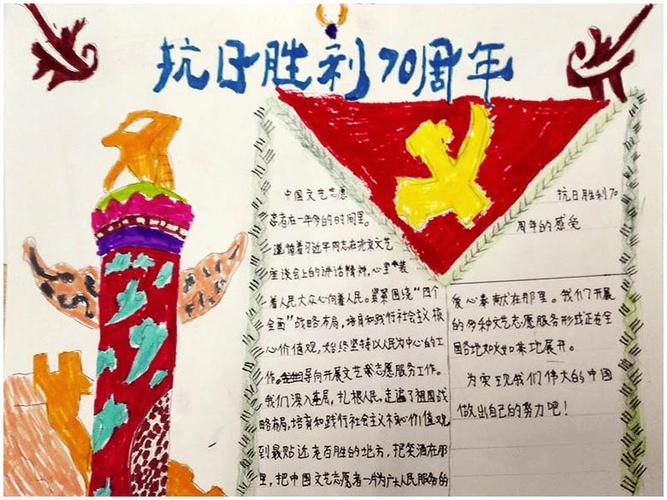 抗日胜利70周年
中国文艺志愿
者在一年多的时间里。
遵循着习近平同志在北京文艺
座谈会上的讲话精神,心里装
着人民大众心向着人民。紧紧围绕“四个
全面”战略布局,培育和践行社会主义核
心价值观,始终坚持以人民为中心的工
作导向开展文艺志愿服务工作。
我们深入基层,扎根人民,走遍了祖国战
略布局,培育和践行社会主义核心价值观
到最贴近老百胜的地方,把笑洒在那
里,把中国文艺志愿者一片为广大人民服务的
抗日胜利70
周年的感受
爱心奉献在那里。我们开展
的多种文艺志愿服务形式正在全
国各地如火如荼地展开。
为实现我们伟大的中国
做出自己的努力吧!